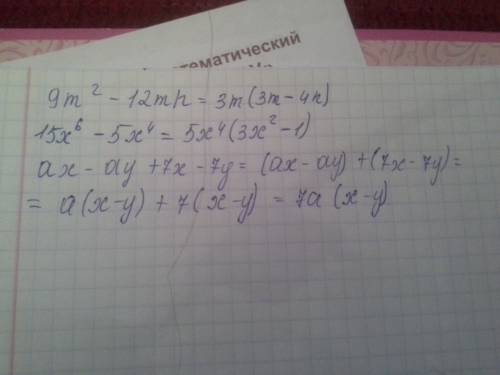 математический
9m² - 12mn = 3m(3m - 4n)
15x⁶ - 5x⁴ = 5x⁴(3x² - 1)
ax - ay + 7x - 7y = (ax - ay) + (7x - 7y) =
= a(x-y) + 7(x-y) = 7a(x-y)